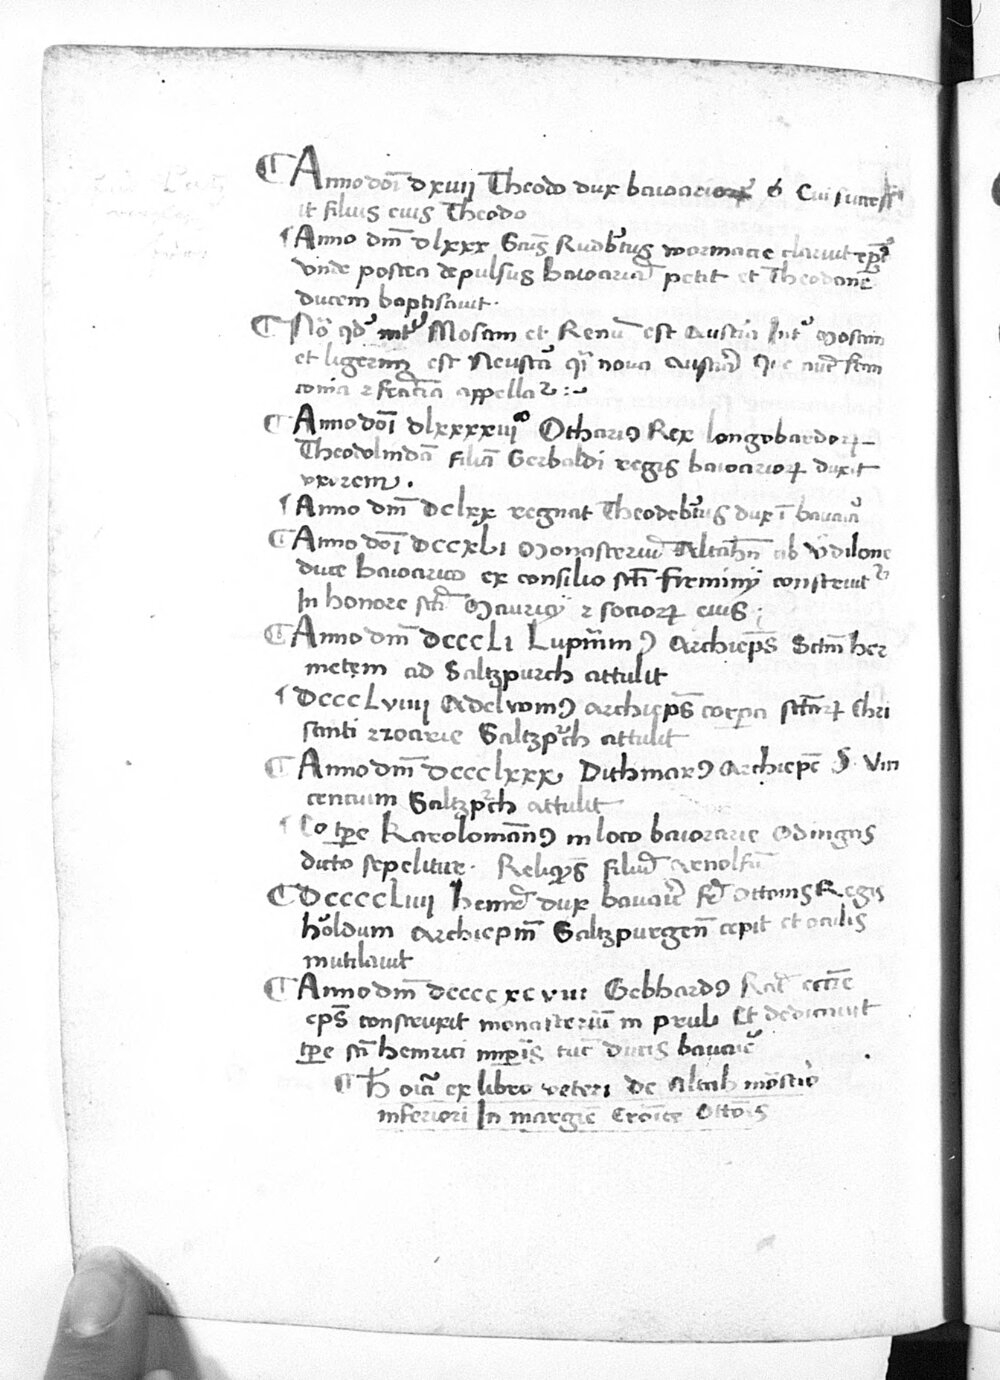 ¶ Anno doī dxvij Theodo dux baioarioꝝ ō Cui success
it filius eius Theodo
¶ Anno dm̄ dlxxx Scūs Rudb̄tus wormacie claruit ep̄s
vnde postea depulsus baioariā petit et Theodonē
ducem baptisauit.
¶ No qd int' Mosam et Renū est Austria Int' mosam
et ligerim est Neustā qi nova Austria Que nūc fran
conia ⁊ francia appellaꝛ :~
¶ Anno doī dlxxxxiij Othariꝰ Rex longobardoꝝ
Theodolindā filiā Gerbaldi regis baioarioꝝ duxit
vxorem.
¶ Anno dm̄ dclxx regnat Theodeb̄tus dux ī bauaria
¶ Anno doī dccxli Monasteriū Altahn̄ ab Vdilone
duce baioarico ex consilio sc̄ti firminij construit
In honore sc̄ti Mauricij ⁊ socioꝝ eius ;
¶ Anno dm̄ dcccli Lupm̄mꝰ Archiep̄s Sctm̄ her
metem ad Saltzpurch attulit
¶ dccclviiij Adelwomꝰ archiep̄s corpa sc̄tarꝝ Chri
santi ⁊ Darie Saltzpᵘch attulit
¶ Anno dm̄ dccclxxx Dithmarꝰ Archiepc̄ S. Vin
centium Saltzpᵘch attulit
¶ Eo tp̄e Karolomān̄ꝰ in loco baiorarie Odingas
dicto sepelitur. Reliq̄s filiū Arnolfū
¶ dcccccliiij Henric̄ dux bauarie fr̄ Ottonis Regis
h'oldum Archiepm̄ Saltzpurgen̄ cepit et oculis
mutilauit
¶ Anno dm̄ dccccxcviii Gebhardꝰ Rat' eccīe
ep̄s construxit monasteriū in prul Et dedicauit
tp̄e sc̄i Henrici imp̄is tūc ducis bauarie
¶ H oīa ex libro veteri de Altah mōstrio
inferiori In margīe Cronīce Ottōis